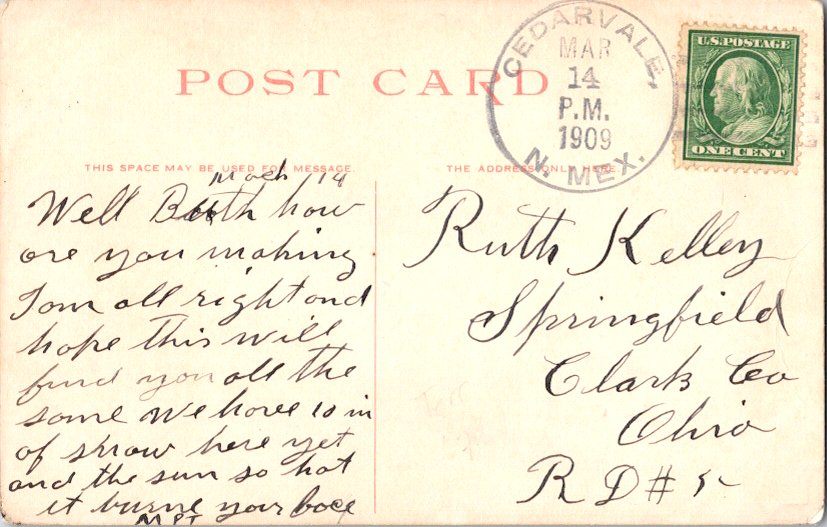 POST CARD
CEDARVALE,
MAR
14
P.M.
1909
N. MEX.
U.S. POSTAGE
ONE CENT
THIS SPACE MAY BE USED FOR MESSAGE.
THE ADDRESS ONLY HERE
March 14
Well Ruth how
are you making
I am all right and
hope this will
find you all the
same We have 10 in
of snow here yet
and the sun so hot
it burns your face
Ruth Kelley
Springfield
Clark Co
Ohio
R D # 5